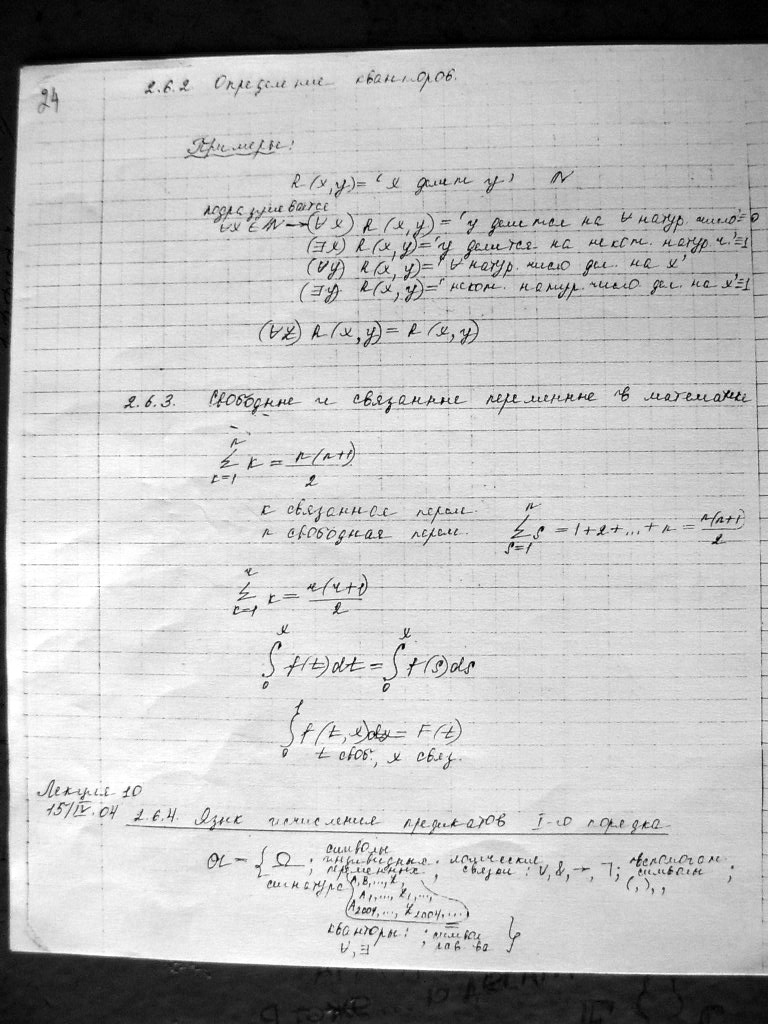 24
2.6.2 Определение кванторов.
Примеры:
R(x,y)=‘x делит y’ ℕ
подразумевается
∀x∈ℕ → (∀x) R(x,y)=‘y делится на ∀ натур. число’≡0
(∃x) R(x,y)=‘y делится на некот. натур. ч.’≡1
(∀y) R(x,y)=‘∀ натур. число дел. на x’
(∃y) R(x,y)=‘некот. натур. число дел. на x’≡1
(∀z) R(x,y)=R(x,y)
2.6.3. Свободные и связанные переменные в математике
∑_{k=1}^{n} k = n(n+1)/2
k связанная перем.
n свободная перем. ∑_{s=1}^{n} s = 1+2+...+n = n(n+1)/2
∑_{k=1}^{r} k = r(r+1)/2
∫_0^x f(t)dt = ∫_0^x f(s)ds
∫_0^1 f(t,x)dx = F(t)
t своб., x связ.
Лекция 10
15/IV.04 2.6.4. Язык исчисления предикатов I-го порядка
𝔄 = { Ω ; символы индивидных переменных ; логические связки: ∨, &, →, ¬; вспомогат. символы (, ), , ;
сигнатура
A,B,...,X,
A₁,...,X₁,...
A₂₀₀₄,...,X₂₀₀₄,...
кванторы: ∀, ∃ ; символ рав-ва = }